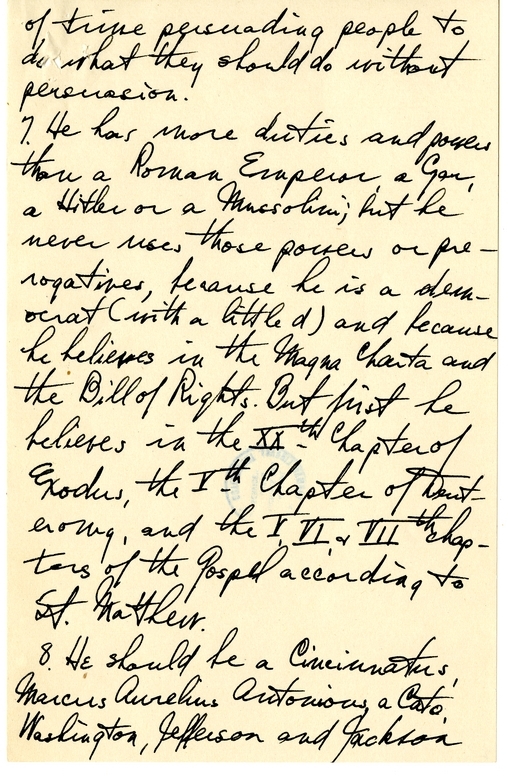 of time persuading people to
do what they should do without
persuasion.
7. He has more duties and powers
than a Roman Emperor, a Gen.,
a Hitler or a Mussolini; but he
never uses those powers or pre-
rogatives, because he is a dem-
ocrat (with a little d) and because
he believes in the Magna Charta and
the Bill of Rights. But first he
believes in the XXth Chapter of
Exodus, the Vth Chapter of Deut-
eronomy, and the V, VI, & VIIth chap-
ters of the Gospel according to
St. Matthew.
8. He should be a Cincinnatus,
Marcus Aurelius Antonious, a Cato,
Washington, Jefferson and Jackson